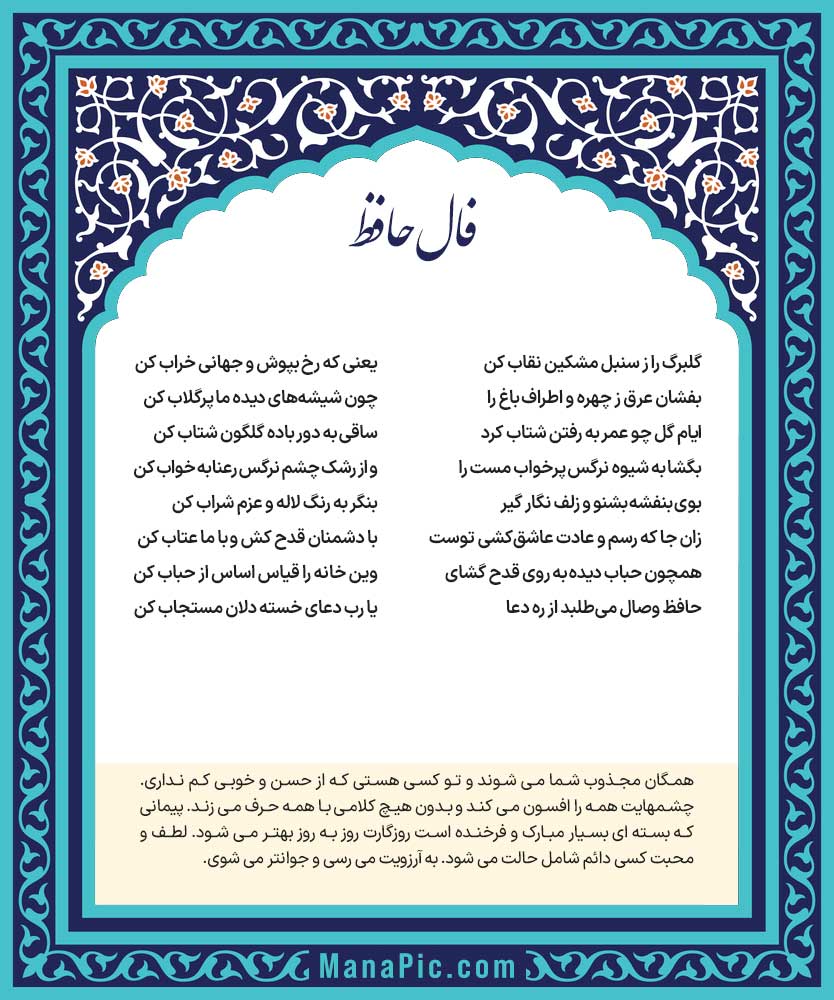 فال حافظ
گلبرگ را ز سنبل مشکین نقاب کن یعنی که رخ بپوش و جهانی خراب کن
بفشان عرق ز چهره و اطراف باغ را چون شیشه‌های دیده ما پرگلاب کن
ایام گل چو عمر به رفتن شتاب کرد ساقی به دور باده گلگون شتاب کن
بگشا به شیوه نرگس پرخواب مست را و از رشک چشم نرگس رعنا به خواب کن
بوی بنفشه بشنو و زلف نگار گیر بنگر به رنگ لاله و عزم شراب کن
زان جا که رسم و عادت عاشق‌کشی توست با دشمنان قدح کش و با ما عتاب کن
همچون حباب دیده به روی قدح گشای وین خانه را قیاس اساس از حباب کن
حافظ وصال می‌طلبد از ره دعا یا رب دعای خسته دلان مستجاب کن
همگان مجذوب شما می شوند و تو کسی هستی که از حسن و خوبی کم نداری.
چشمهایت همه را افسون می کند و بدون هیچ کلامی با همه حرف می زند. پیمانی
که بسته ای بسیار مبارک و فرخنده است روزگارت روز به روز بهتر می شود. لطف و
محبت کسی دائم شامل حالت می شود. به آرزویت می رسی و جوانتر می شوی.
ManaPic.com